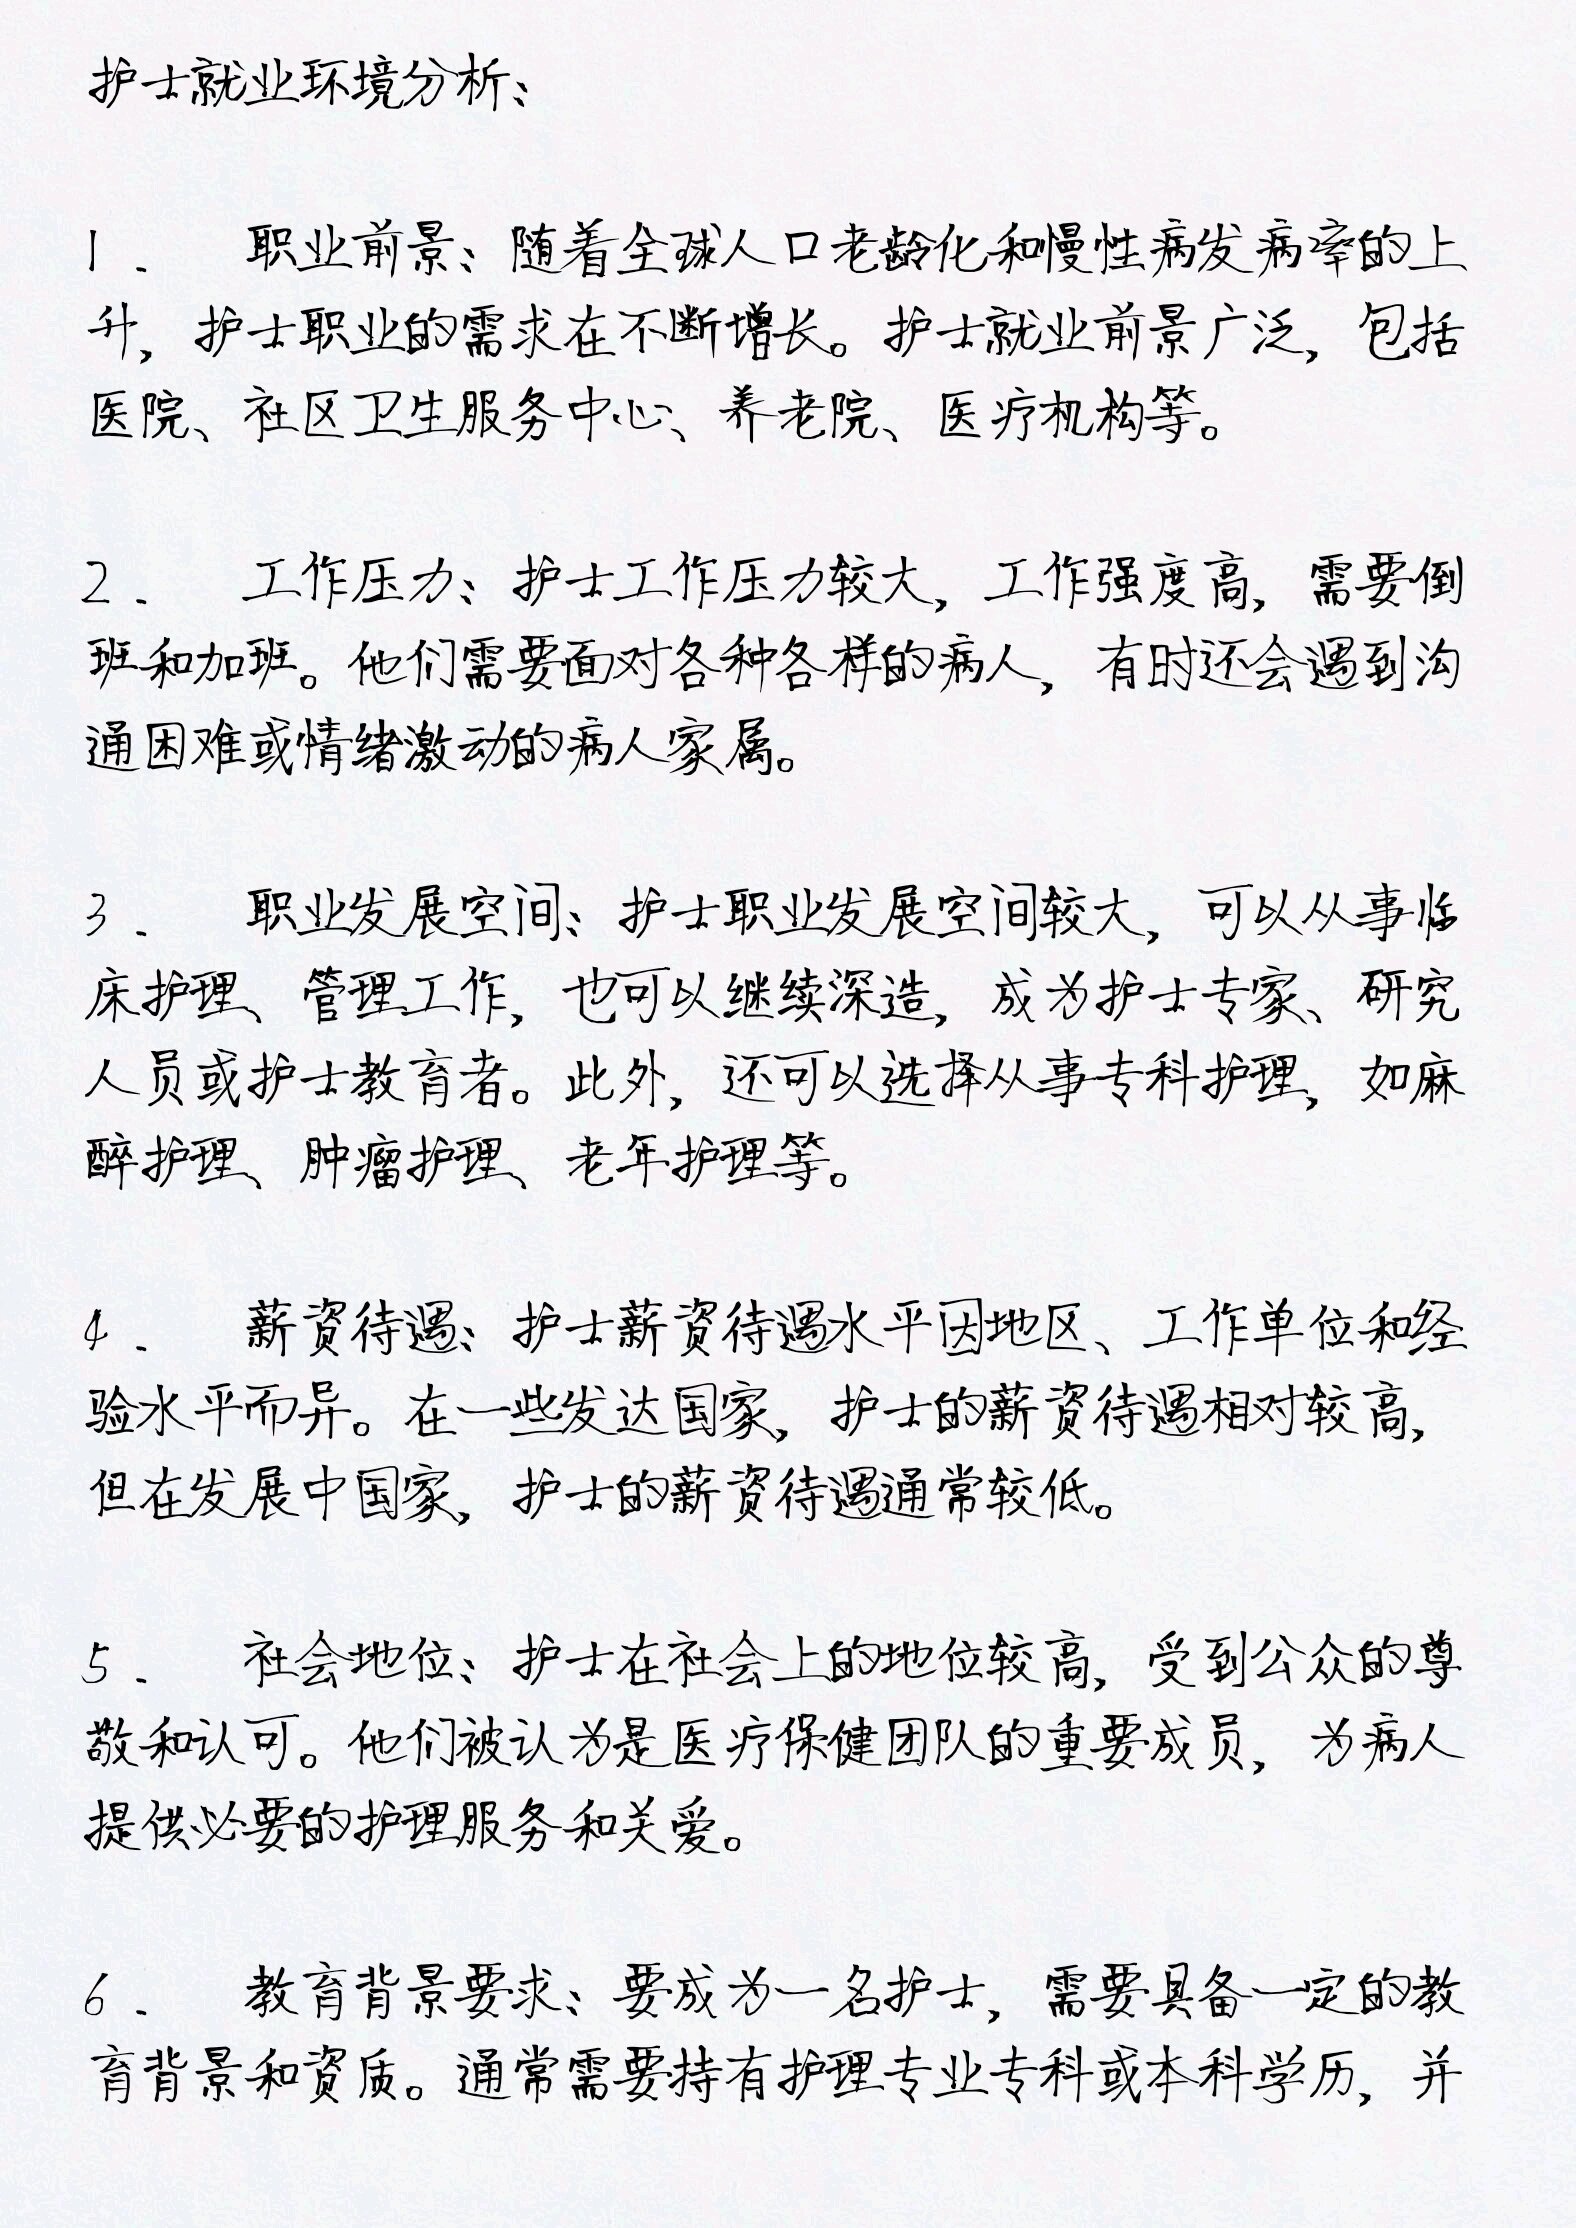 护士就业环境分析：
1. 职业前景：随着全球人口老龄化和慢性病发病率的上
升，护士职业的需求在不断增长。护士就业前景广泛，包括
医院、社区卫生服务中心、养老院、医疗机构等。
2. 工作压力：护士工作压力较大，工作强度高，需要倒
班和加班。他们需要面对各种各样的病人，有时还会遇到沟
通困难或情绪激动的病人家属。
3. 职业发展空间：护士职业发展空间较大，可以从事临
床护理、管理工作，也可以继续深造，成为护士专家、研究
人员或护士教育者。此外，还可以选择从事专科护理，如麻
醉护理、肿瘤护理、老年护理等。
4. 薪资待遇：护士薪资待遇水平因地区、工作单位和经
验水平而异。在一些发达国家，护士的薪资待遇相对较高，
但在发展中国家，护士的薪资待遇通常较低。
5. 社会地位：护士在社会上的地位较高，受到公众的尊
敬和认可。他们被认为是医疗保健团队的重要成员，为病人
提供必要的护理服务和关爱。
6. 教育背景要求：要成为一名护士，需要具备一定的教
育背景和资质。通常需要持有护理专业专科或本科学历，并